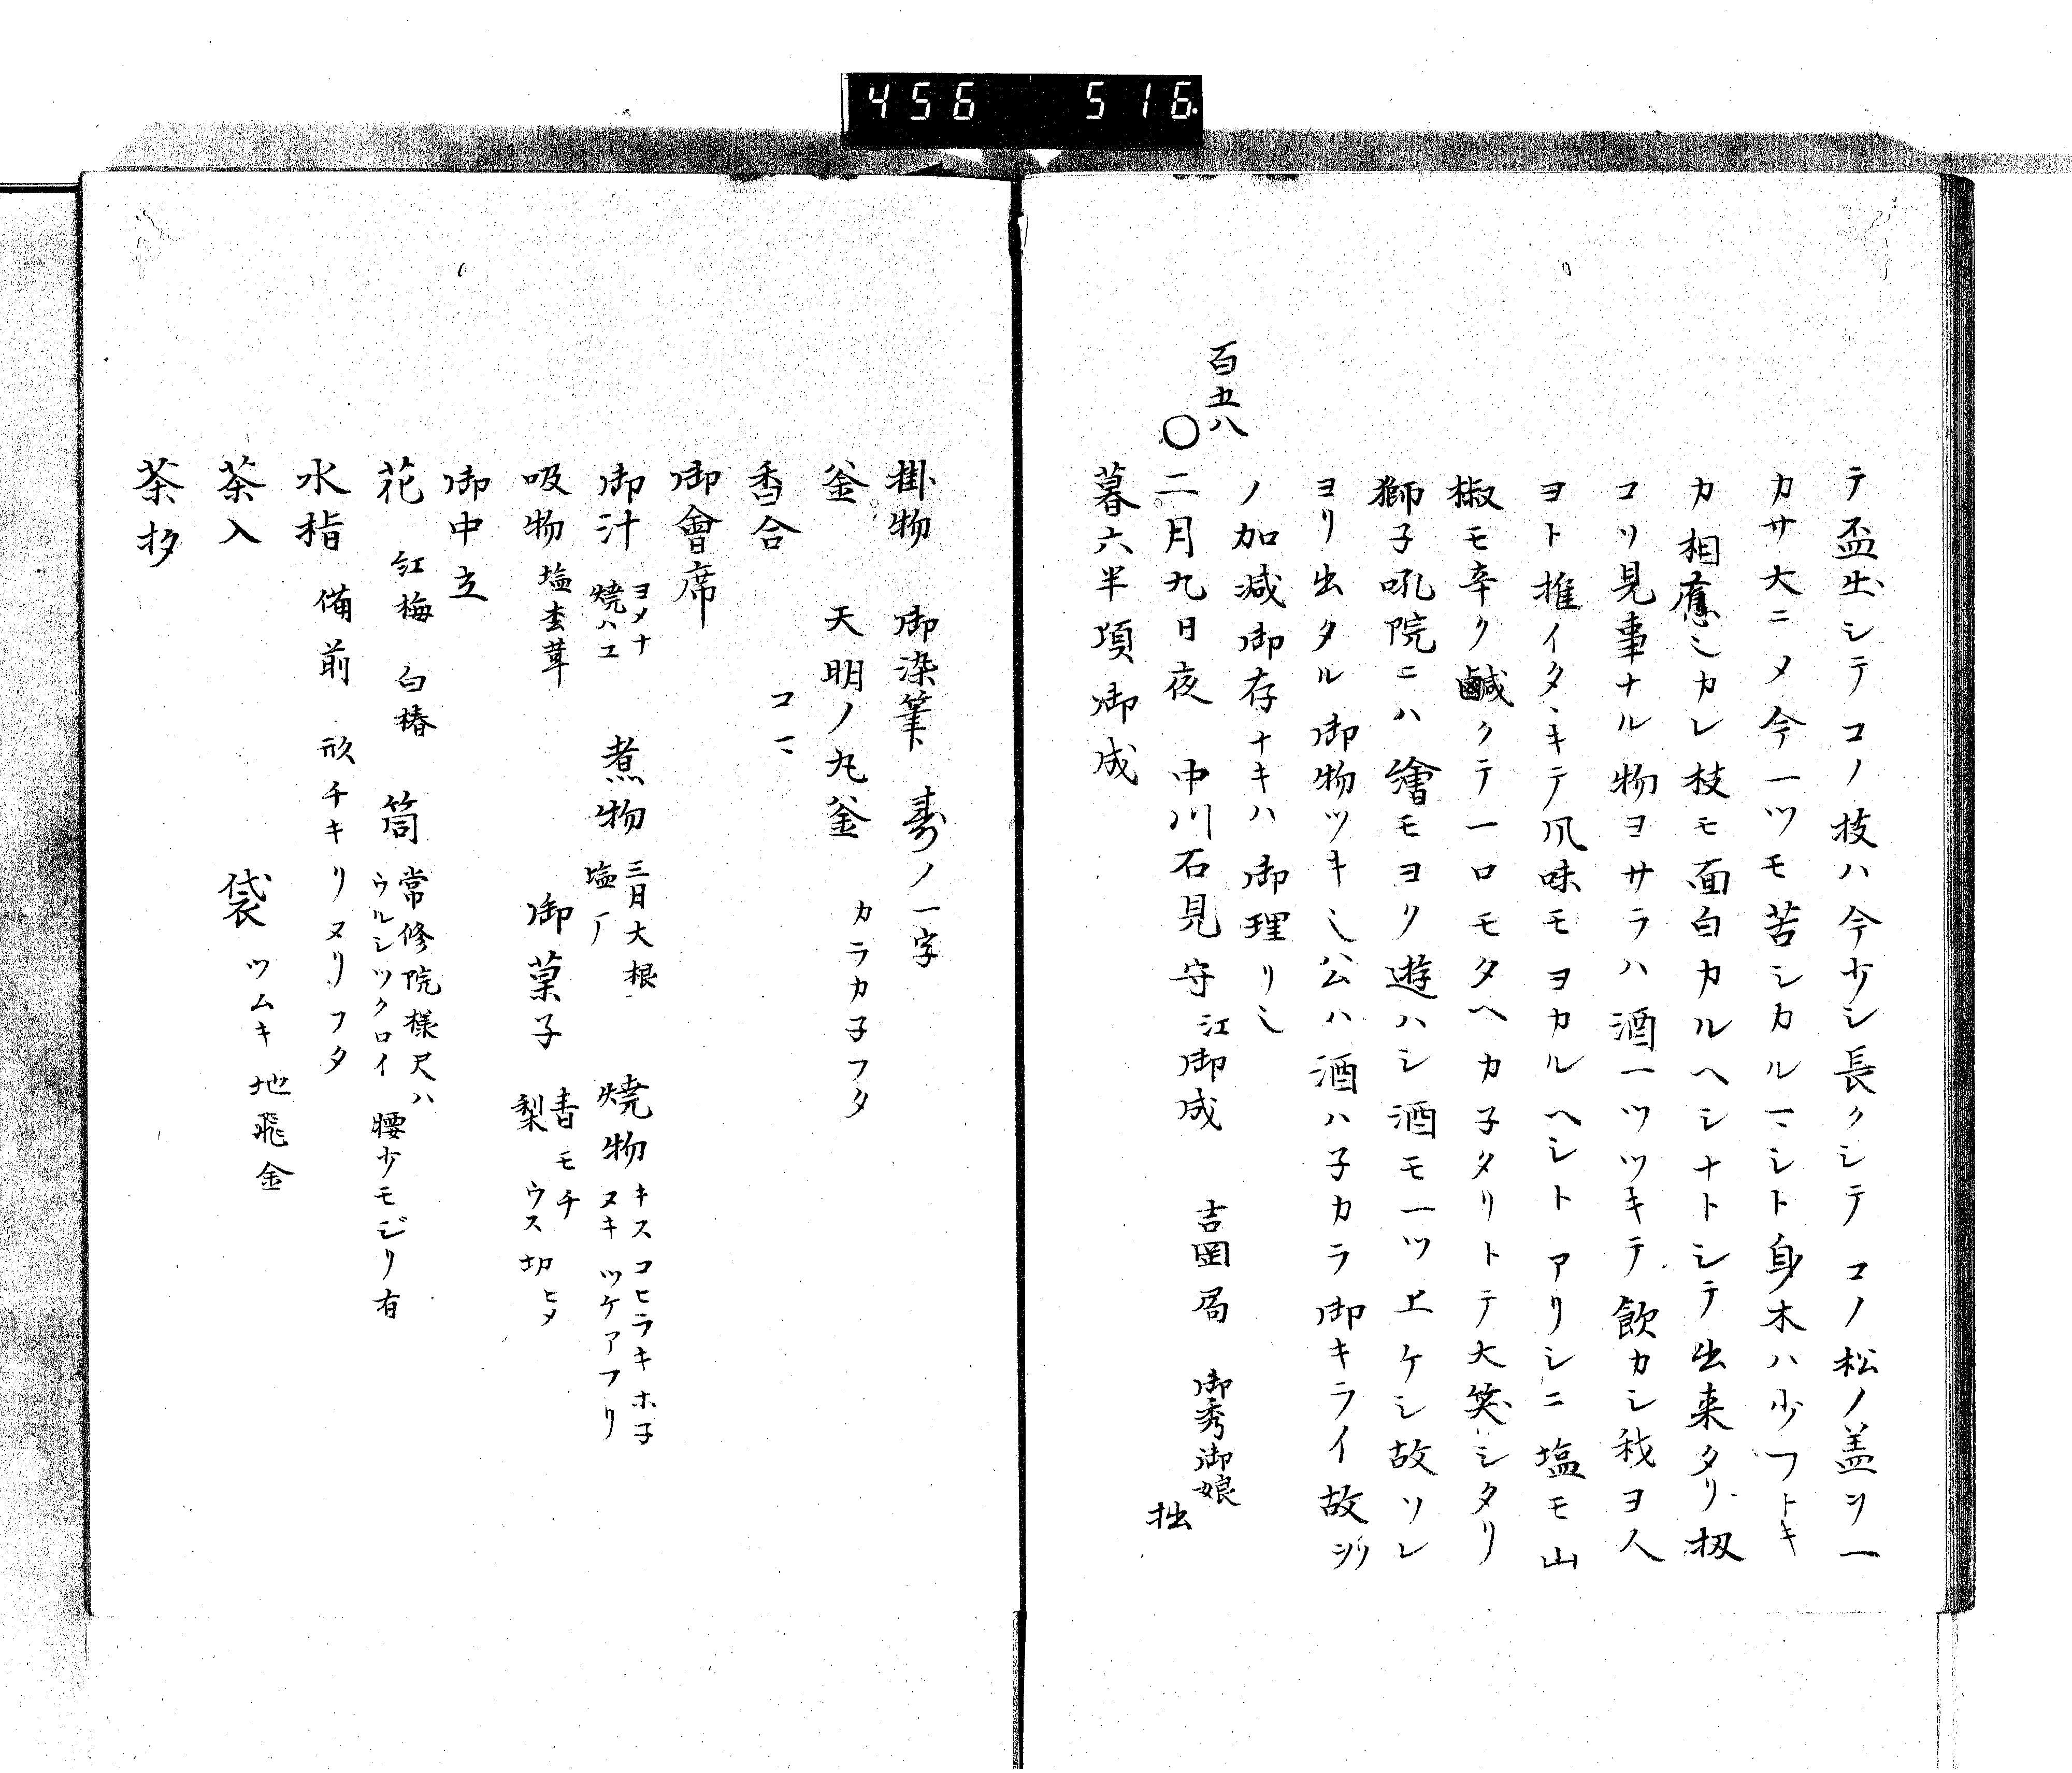 456 516.
テ盃出シテコノ枝ハ今少シ長クシテコノ松ノ盖ヲ一
カサ大ニメ今一ツモ苦シカルマシト身木ハ少フトキ
カ相應シカレ枝モ面白カルヘシナトシテ出来タリ扨
コソ見事ナル物ヨサラハ酒一ツツキテ飲カシ我ヨ人
ヨト推イタヽキテ風味モヨカルヘシトアリシニ塩モ山
椒モ辛ク鹹クテ一口モタヘカ子タリトテ大笑シタリ
獅子吼院ニハ繪モヨク遊ハシ酒モ一ツ上ケシ故ソレ
ヨリ出タル御物ツキシ公ハ酒ハ子カラ御キライ故ソ
ノ加減御存ナキハ御理リシ
百五八
〇二月九日夜 中川石見守江御成 吉岡局 御秀御娘 拙
暮六半頃御成
掛物 御染筆 寿ノ一字
釜 天明ノ丸釜 カラカ子フタ
香合 コマ
御會席
御汁 ヨメナ 焼ハコ 煮物 三月大根 塩 焼物 キスコヒラキホ子 ヌキツケアフリ
吸物 塩松茸 御菓子 青モチ 梨ウス切ヒメ
御中立
花 紅梅 白椿 筒 常修院様尺八 ウルシツクロイ 腰少モジリ有
水指 備前 形チキリヌリフタ
茶入 袋 ツムキ地飛金
茶杓